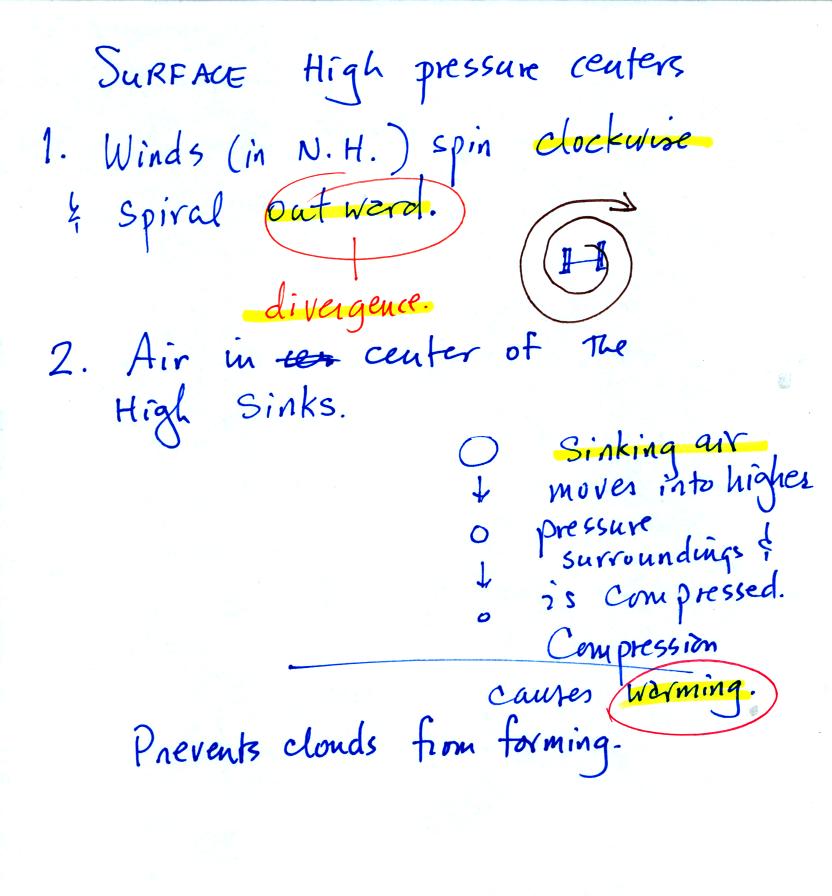 SURFACE High pressure centers
1. Winds (in N.H.) spin clockwise
& spiral outward.
H
divergence.
2. Air in center of the
High sinks.
Sinking air
moves into higher
pressure
surroundings &
is compressed.
Compression
causes warming.
Prevents clouds from forming.